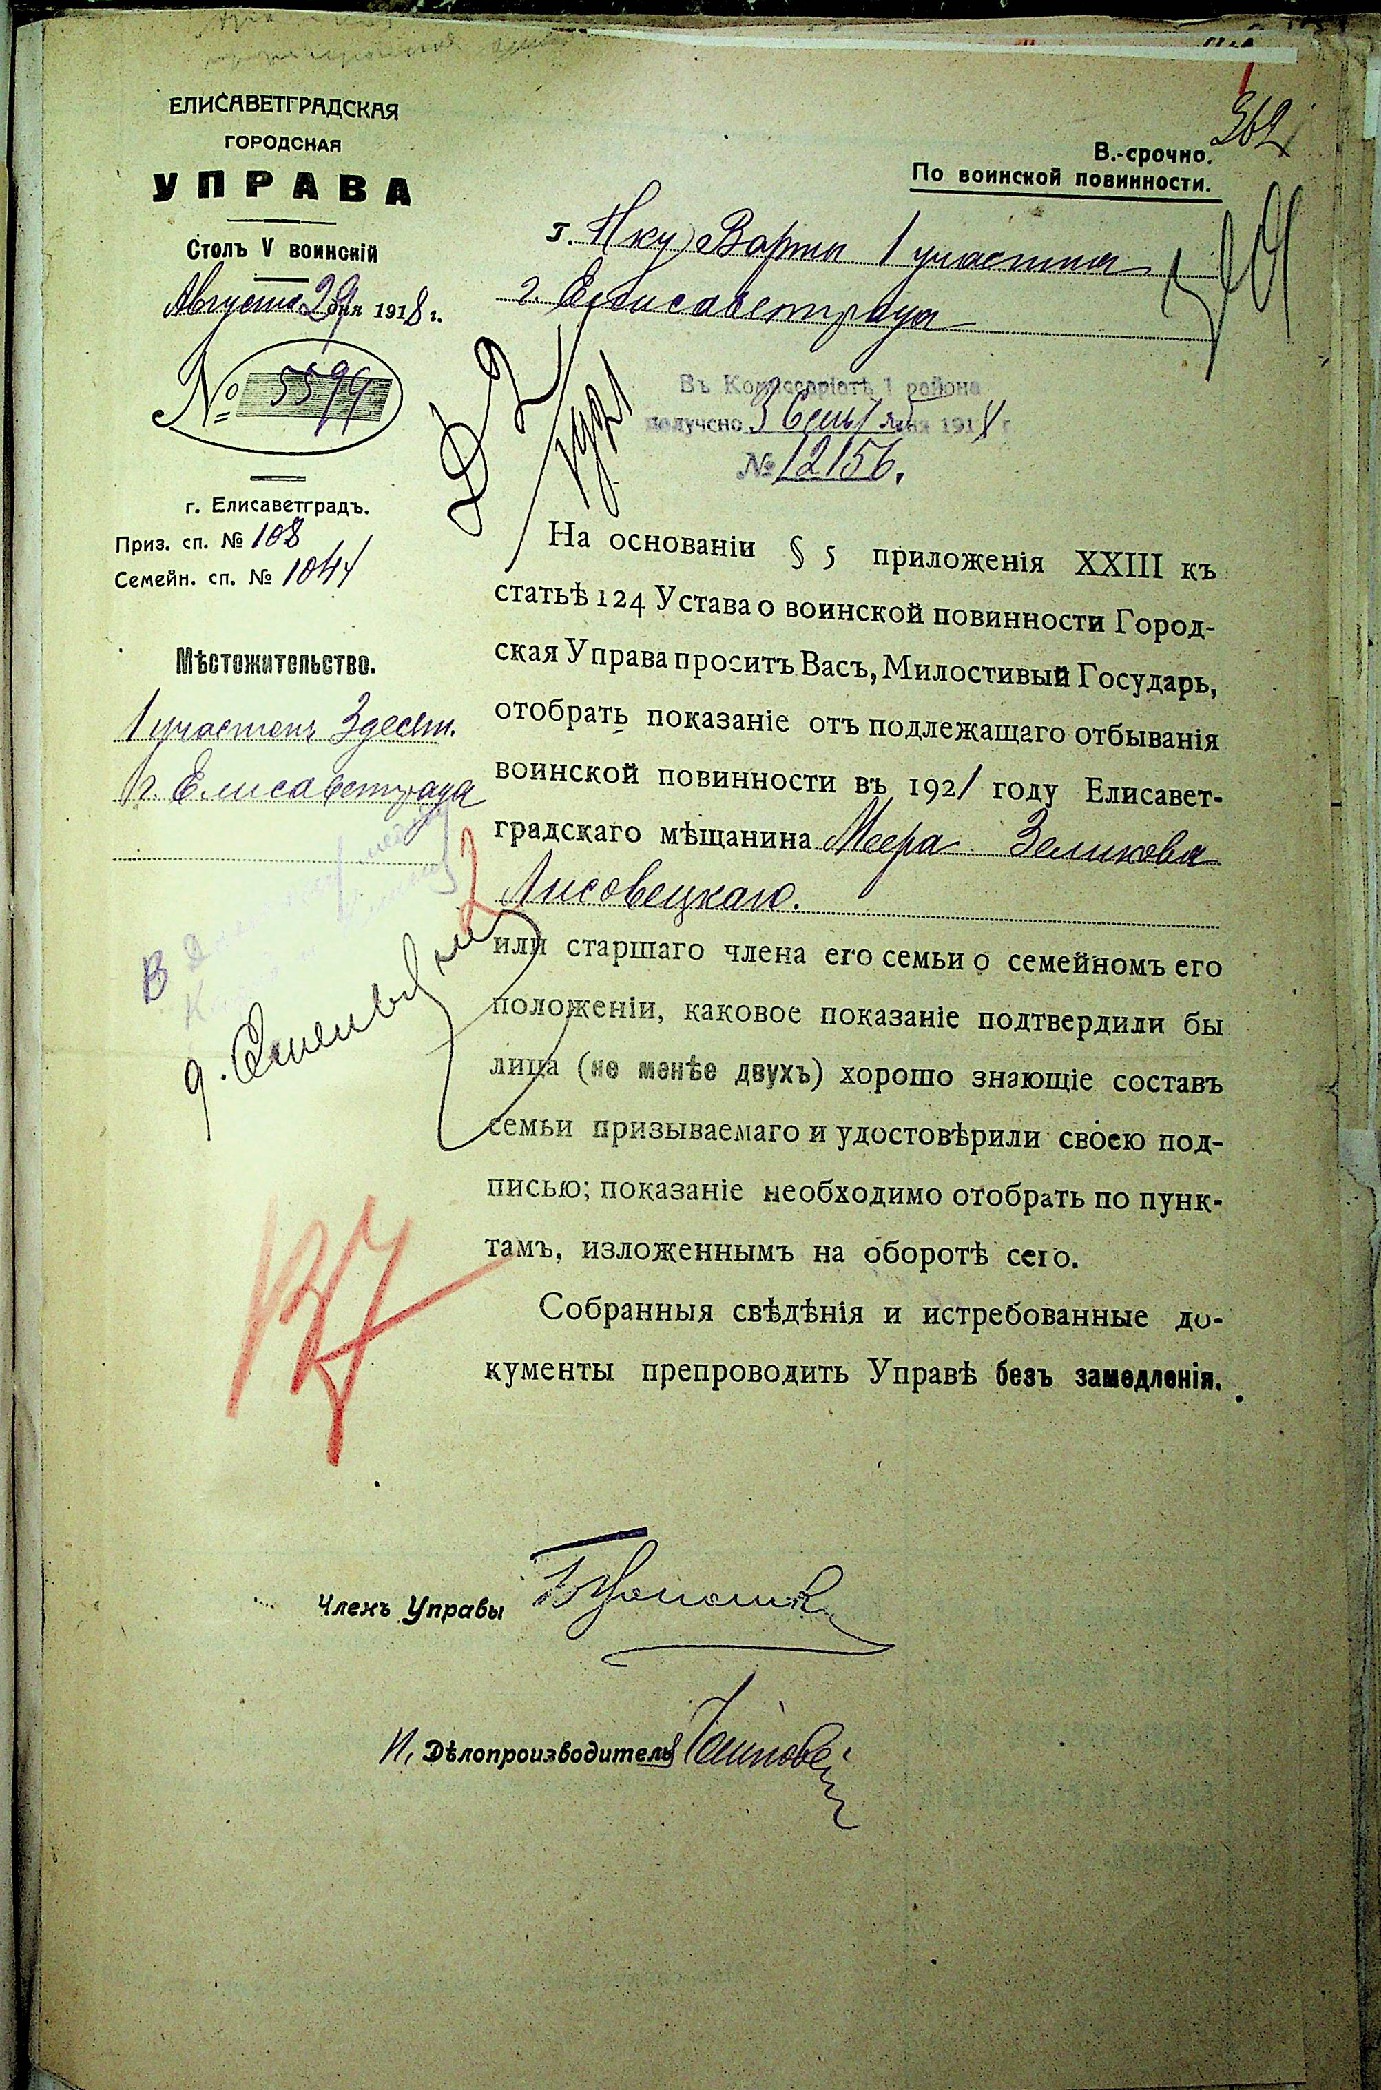 362
ЕЛИСАВЕТГРАДСКАЯ
ГОРОДСКАЯ
УПРАВА
Столъ V воинскій
Августа 29 дня 1918 г.
№ 5594
г. Елисаветградъ.
Приз. сп. № 108
Семейн. сп. № 1044
Мѣстожительство.
1 участокъ Здесь.
г. Елисаветграда
В.-срочно.
По воинской повинности.
г. Нку Варты 1 участка
г. Елисаветграда
Въ Комиссаріатѣ 1 района
получено 3 Сент дня 1918 г.
№ 12156.
На основаніи § 5 приложенія XXIII къ
статьѣ 124 Устава о воинской повинности Город-
ская Управа проситъ Васъ, Милостивый Государь,
отобрать показаніе отъ подлежащаго отбыванія
воинской повинности въ 1921 году Елисавет-
градскаго мѣщанина Меера Зеликова
Лисовецкаго.
или старшаго члена его семьи о семейномъ его
положеніи, каковое показаніе подтвердили бы
лица (не менѣе двухъ) хорошо знающіе составъ
семьи призываемаго и удостовѣрили своею под-
писью; показаніе необходимо отобрать по пунк-
тамъ, изложеннымъ на оборотѣ сего.
Собранныя свѣдѣнія и истребованные до-
кументы препроводить Управѣ безъ замедленія.
Членъ Управы
И. Дѣлопроизводителя